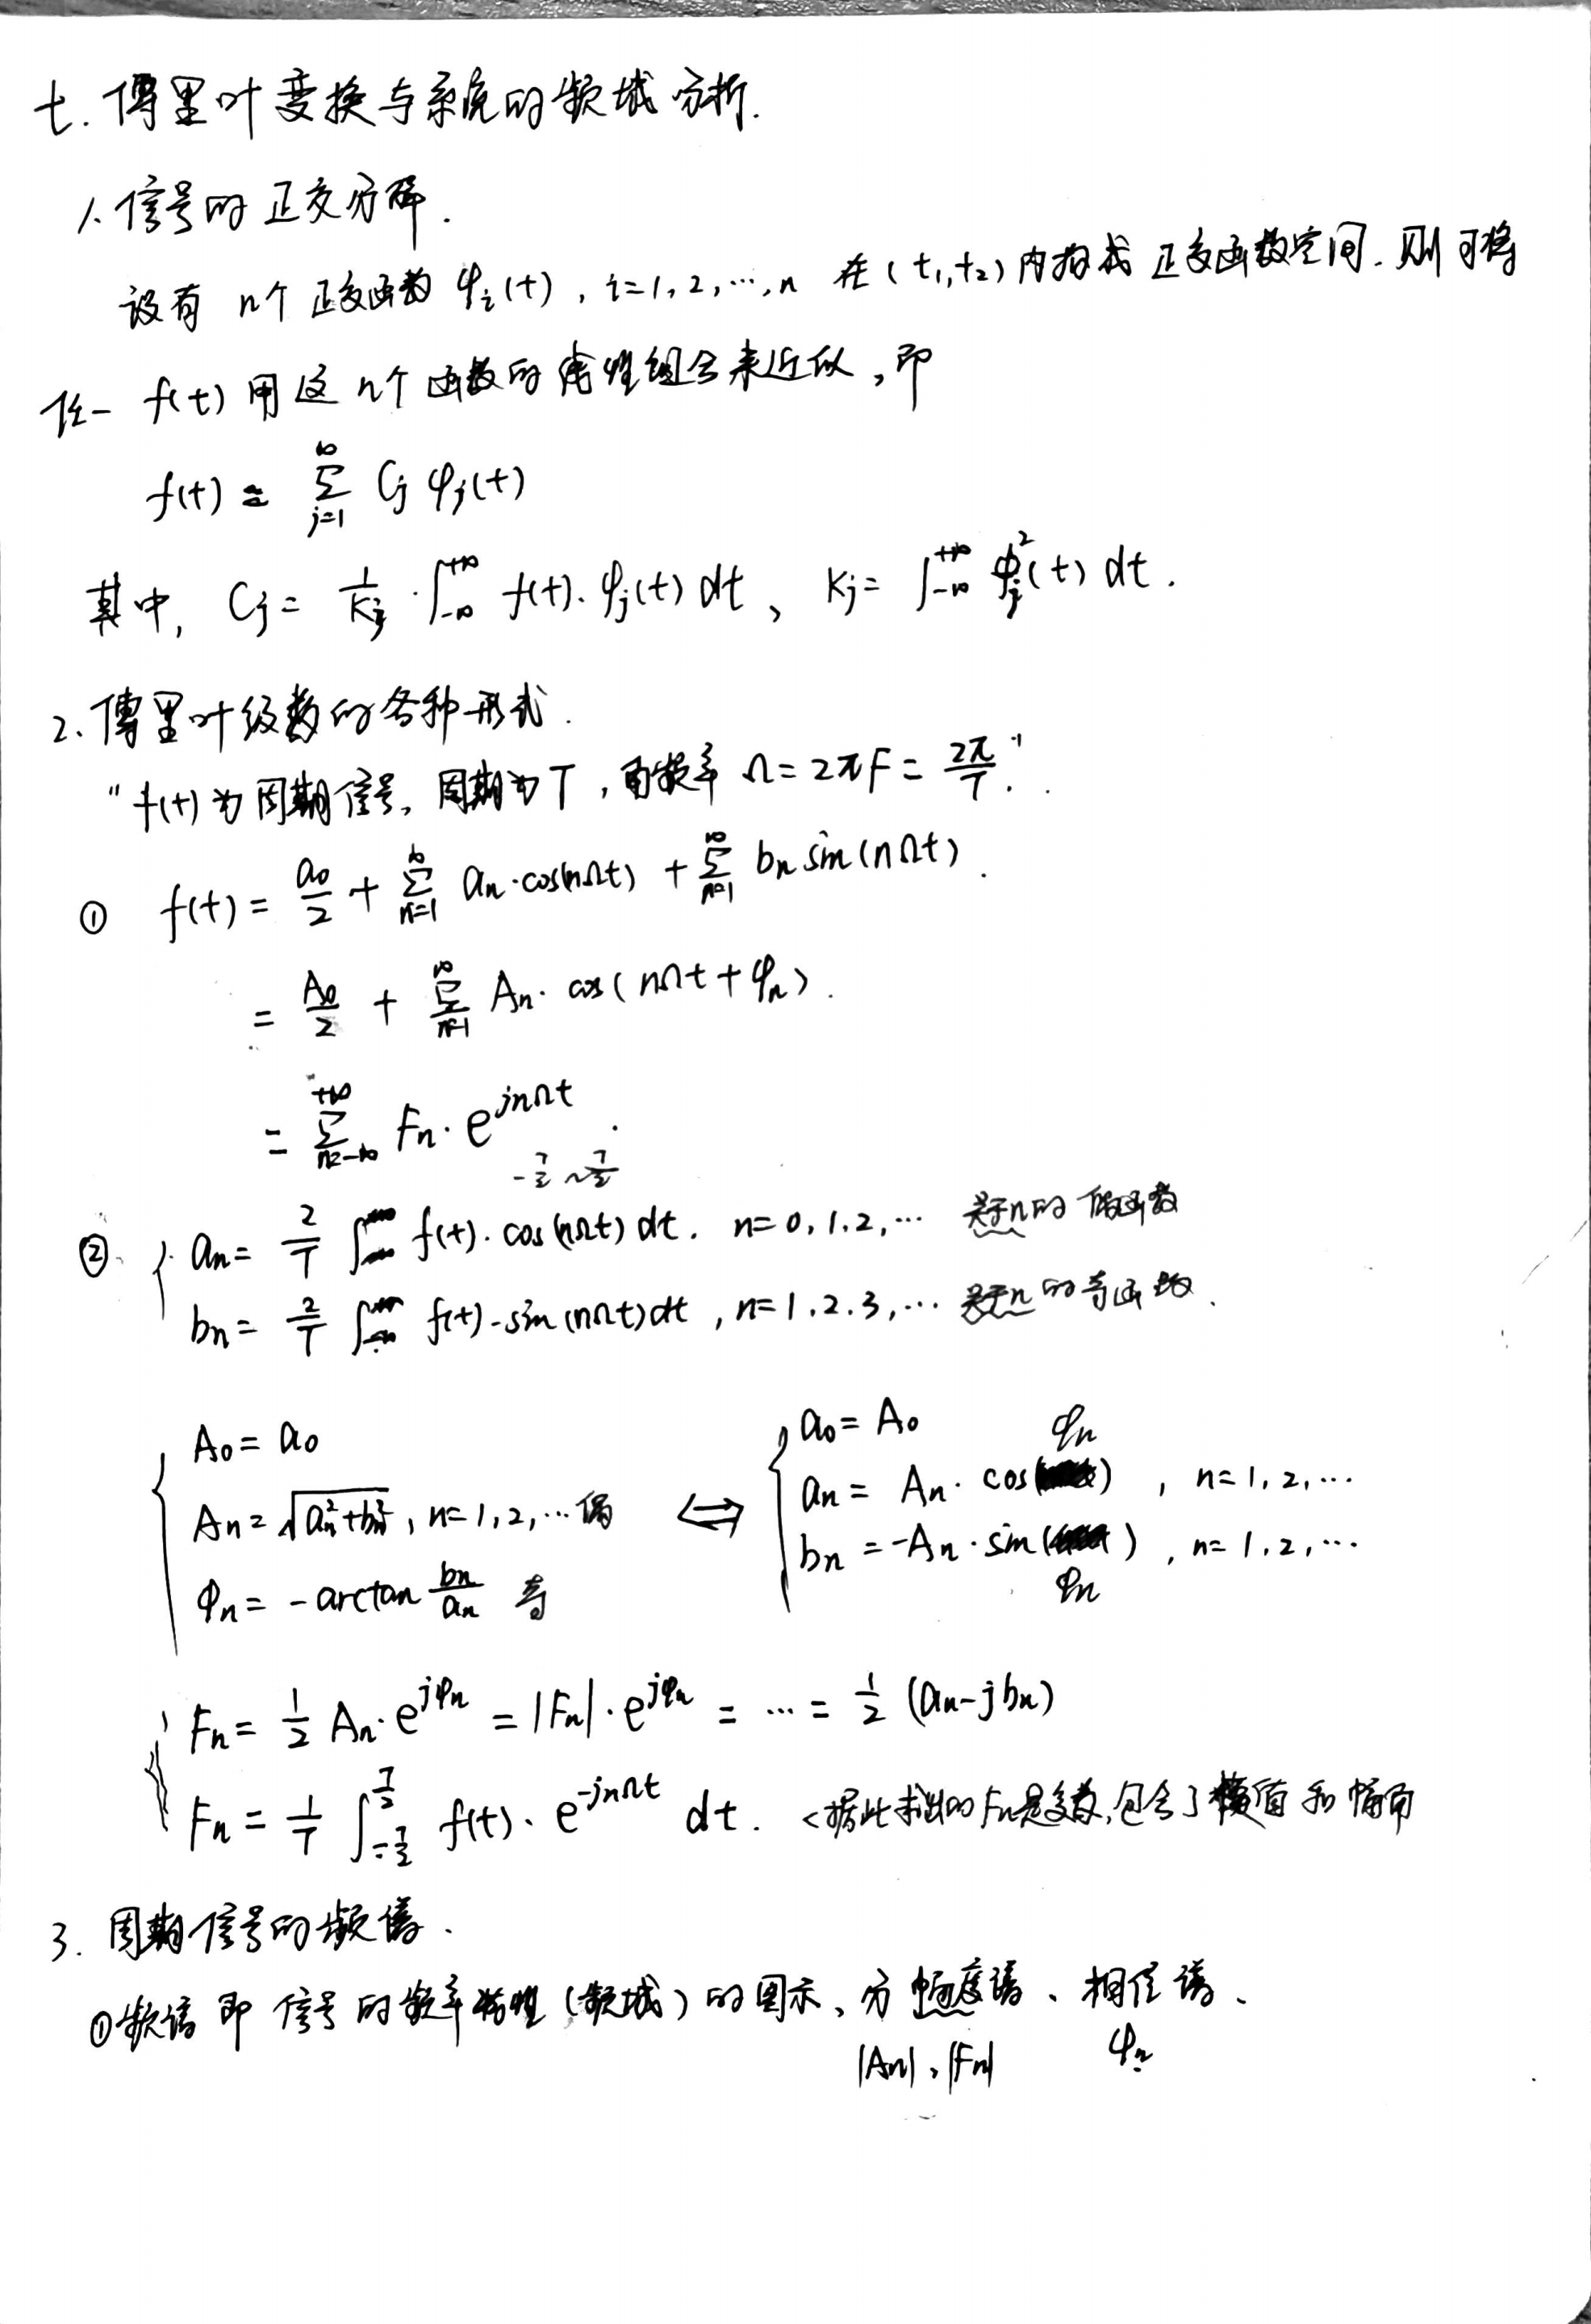 七. 傅里叶变换与系统的频域分析.
1. 信号的正交分解.
设有 n个正交函数 φi(t), i=1, 2, …, n 在 (t1, t2) 内构成正交函数空间. 则可将
任一 f(t) 用这 n个函数的线性组合来近似, 即
f(t) ≈ ∑_{j=1}^{∞} Cj φj(t)
其中, Cj = 1/Kj · ∫_{-∞}^{+∞} f(t)· φj(t) dt, Kj = ∫_{-∞}^{+∞} φj²(t) dt.
2. 傅里叶级数的各种形式.
"f(t)为周期信号, 周期为T, 角频率 Ω = 2πF = 2π/T."
① f(t) = a0/2 + ∑_{n=1}^{∞} an·cos(nΩt) + ∑_{n=1}^{∞} bn sin(nΩt).
= A0/2 + ∑_{n=1}^{∞} An· cos(nΩt + φn).
= ∑_{n=-∞}^{+∞} Fn· e^{jnΩt}.
-T/2 ~ T/2
② an = 2/T ∫ f(t)· cos(nΩt) dt. n=0, 1, 2, … 关于n的偶函数
bn = 2/T ∫ f(t)·sin(nΩt)dt, n=1, 2, 3, … 关于n的奇函数.
A0 = a0
An = √(an²+bn²), n=1, 2, … 偶
φn = -arctan bn/an 奇
⟺
a0 = A0
an = An· cos(φn), n=1, 2, …
bn = -An· sin(φn), n=1, 2, …
Fn = 1/2 An· e^{jφn} = |Fn|· e^{jφn} = … = 1/2 (an - jbn)
Fn = 1/T ∫_{-T/2}^{T/2} f(t)· e^{-jnΩt} dt. <据此求出的Fn是复数, 包含了模值和幅角
3. 周期信号的频谱.
①频谱即信号的频率特性(频域)的图示, 分幅度谱、相位谱.
|An|, |Fn| φn